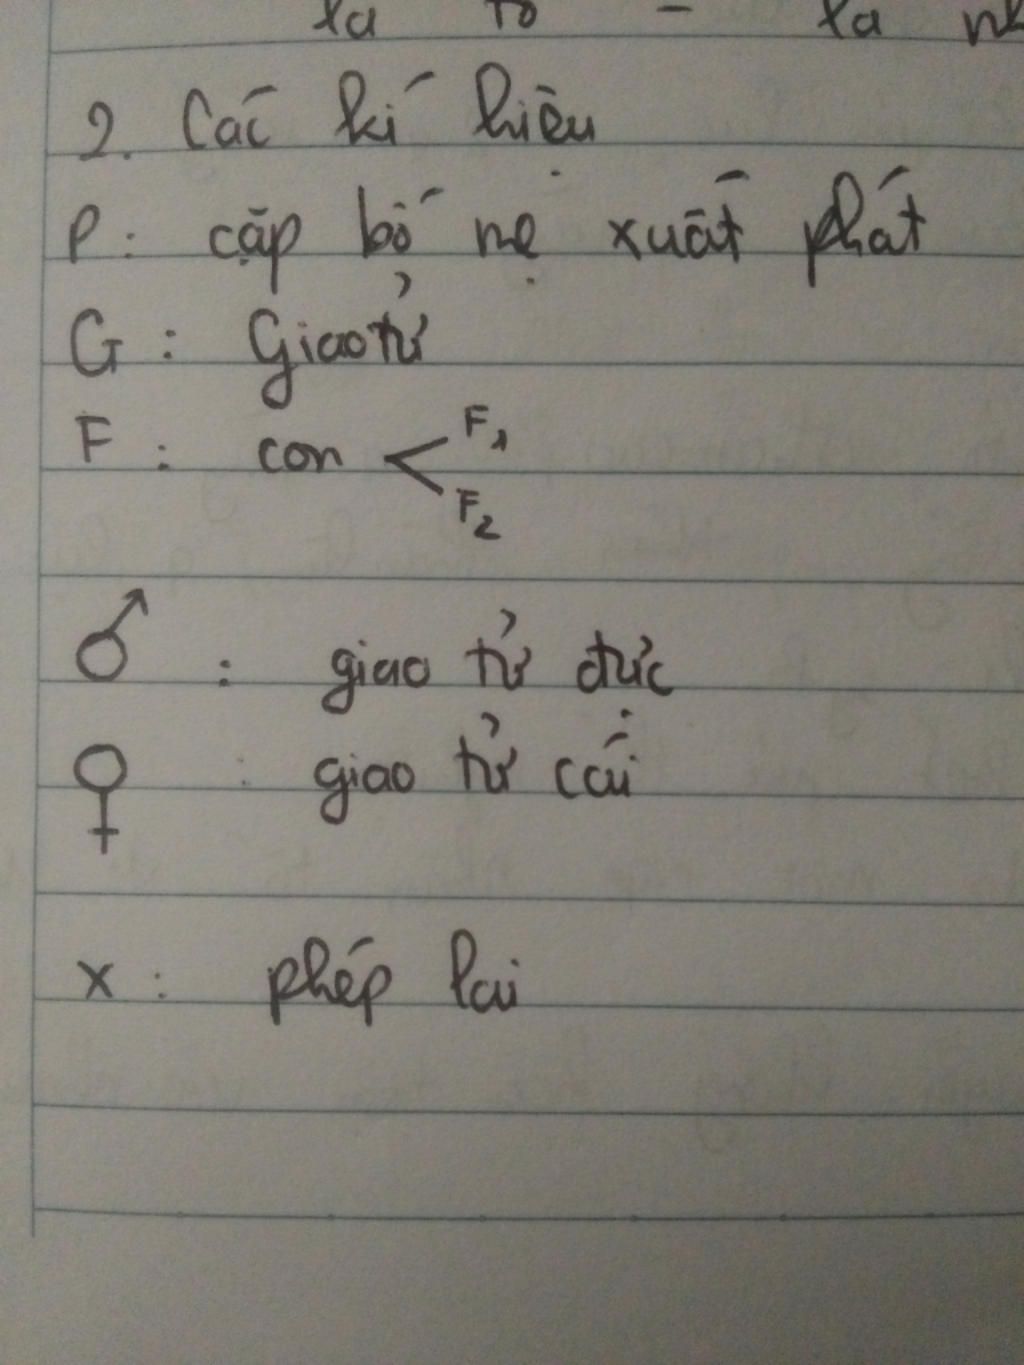 lá to - lá nh
2. Các kí hiệu
P: cặp bố mẹ xuất phát
G: Giao tử
F: con < F1
F2
♂: giao tử đực
♀: giao tử cái
x: phép lai